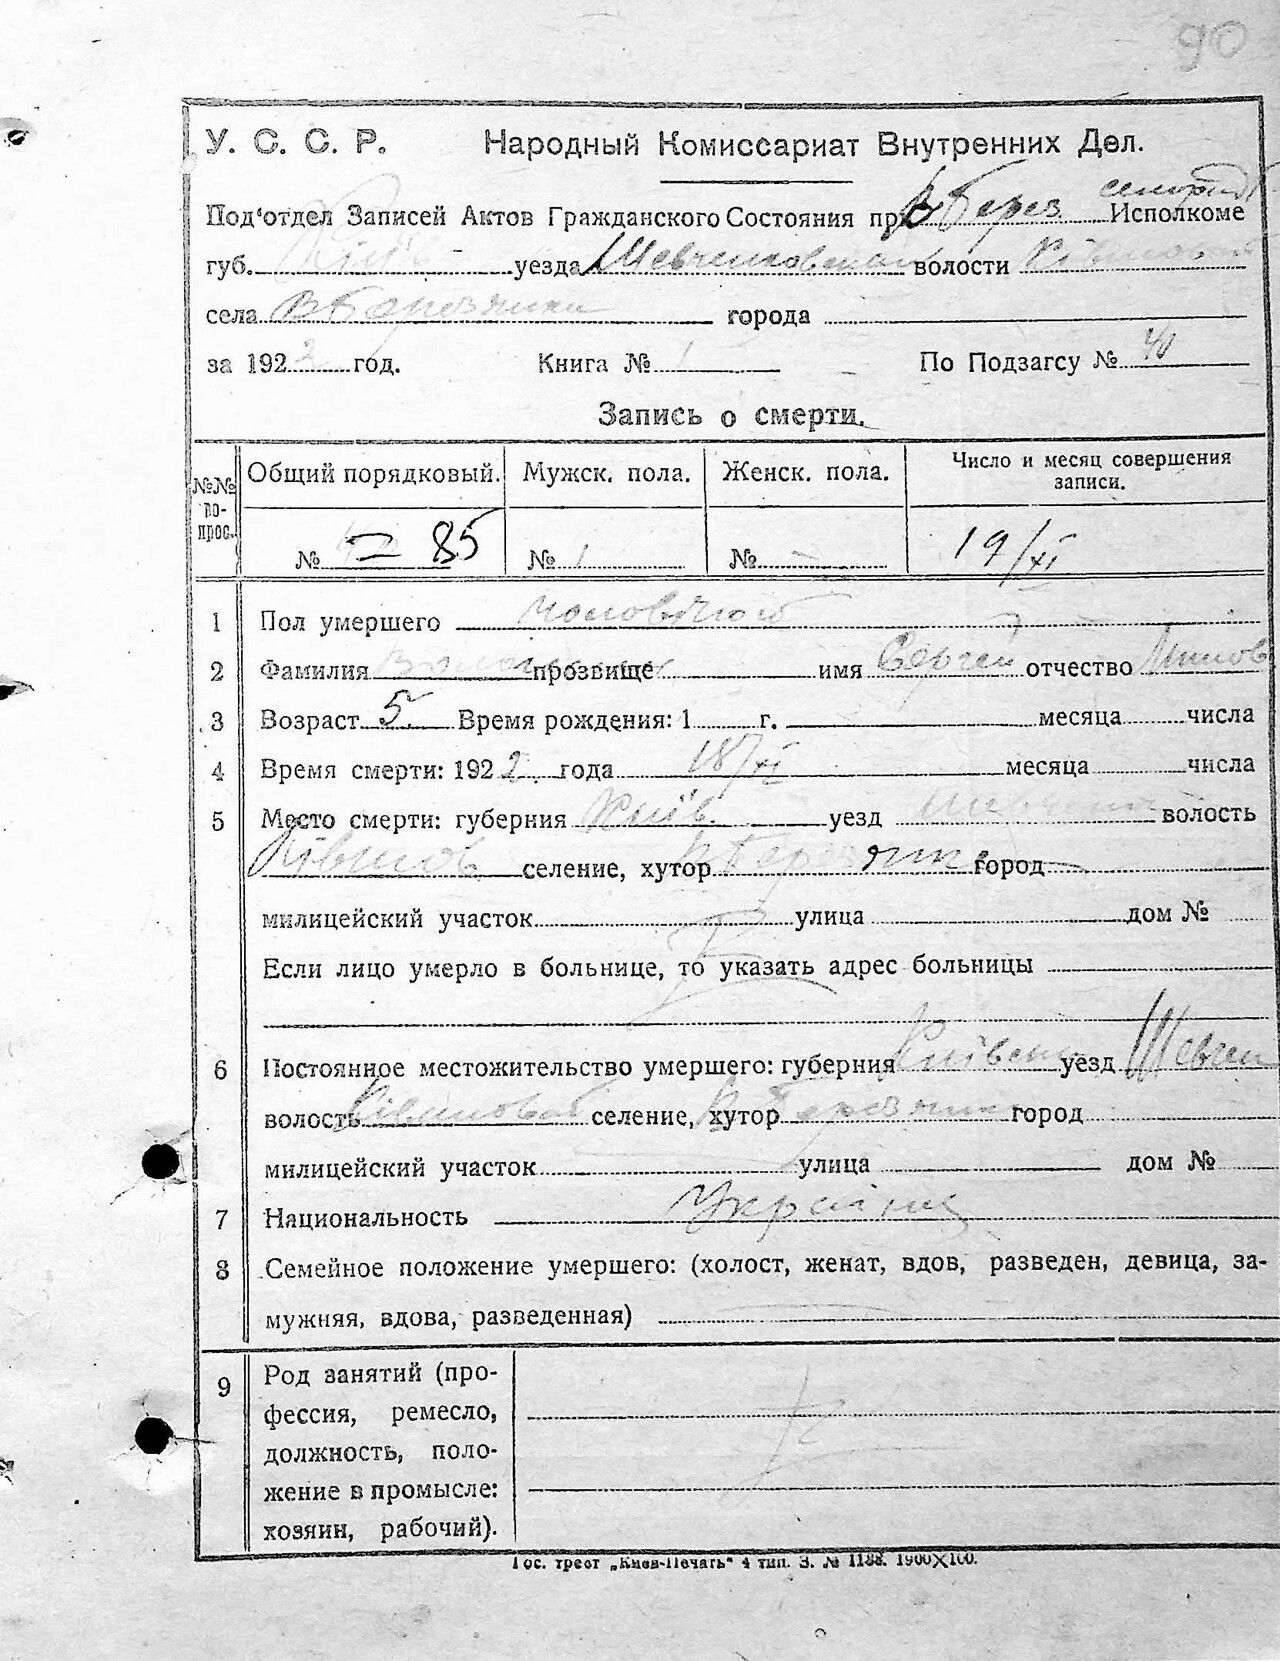 90
У. С. С. Р. Народный Комиссариат Внутренних Дел.
Под'отдел Записей Актов Гражданского Состояния при В Берез Исполкоме
губ. Київ уезда Шевченковськ волости
села В Березянка города
за 1922 год. Книга № 1 По Подзагсу № 40
Запись о смерти.
№№ вопрос. Общий порядковый. Мужск. пола. Женск. пола. Число и месяц совершения записи.
№ 85 № 1 № — 19/XI
1 Пол умершего чоловічого
2 Фамилия прозвище имя Сергей отчество
3 Возраст 5. Время рождения: 1 г. месяца числа
4 Время смерти: 1922. года 18/XI месяца числа
5 Место смерти: губерния Київ. уезд волость
селение, хутор В Березянка город
милицейский участок улица дом №
Если лицо умерло в больнице, то указать адрес больницы
6 Постоянное местожительство умершего: губерния Київськ уезд Шевчен
волость селение, хутор В Березянка город
милицейский участок улица дом №
7 Национальность Українец
8 Семейное положение умершего: (холост, женат, вдов, разведен, девица, за-
мужняя, вдова, разведенная)
9 Род занятий (про-
фессия, ремесло,
должность, поло-
жение в промысле:
хозяин, рабочий).
Гос. трест „Киев-Печать" 4 тип. З. № 1188. 1900X100.